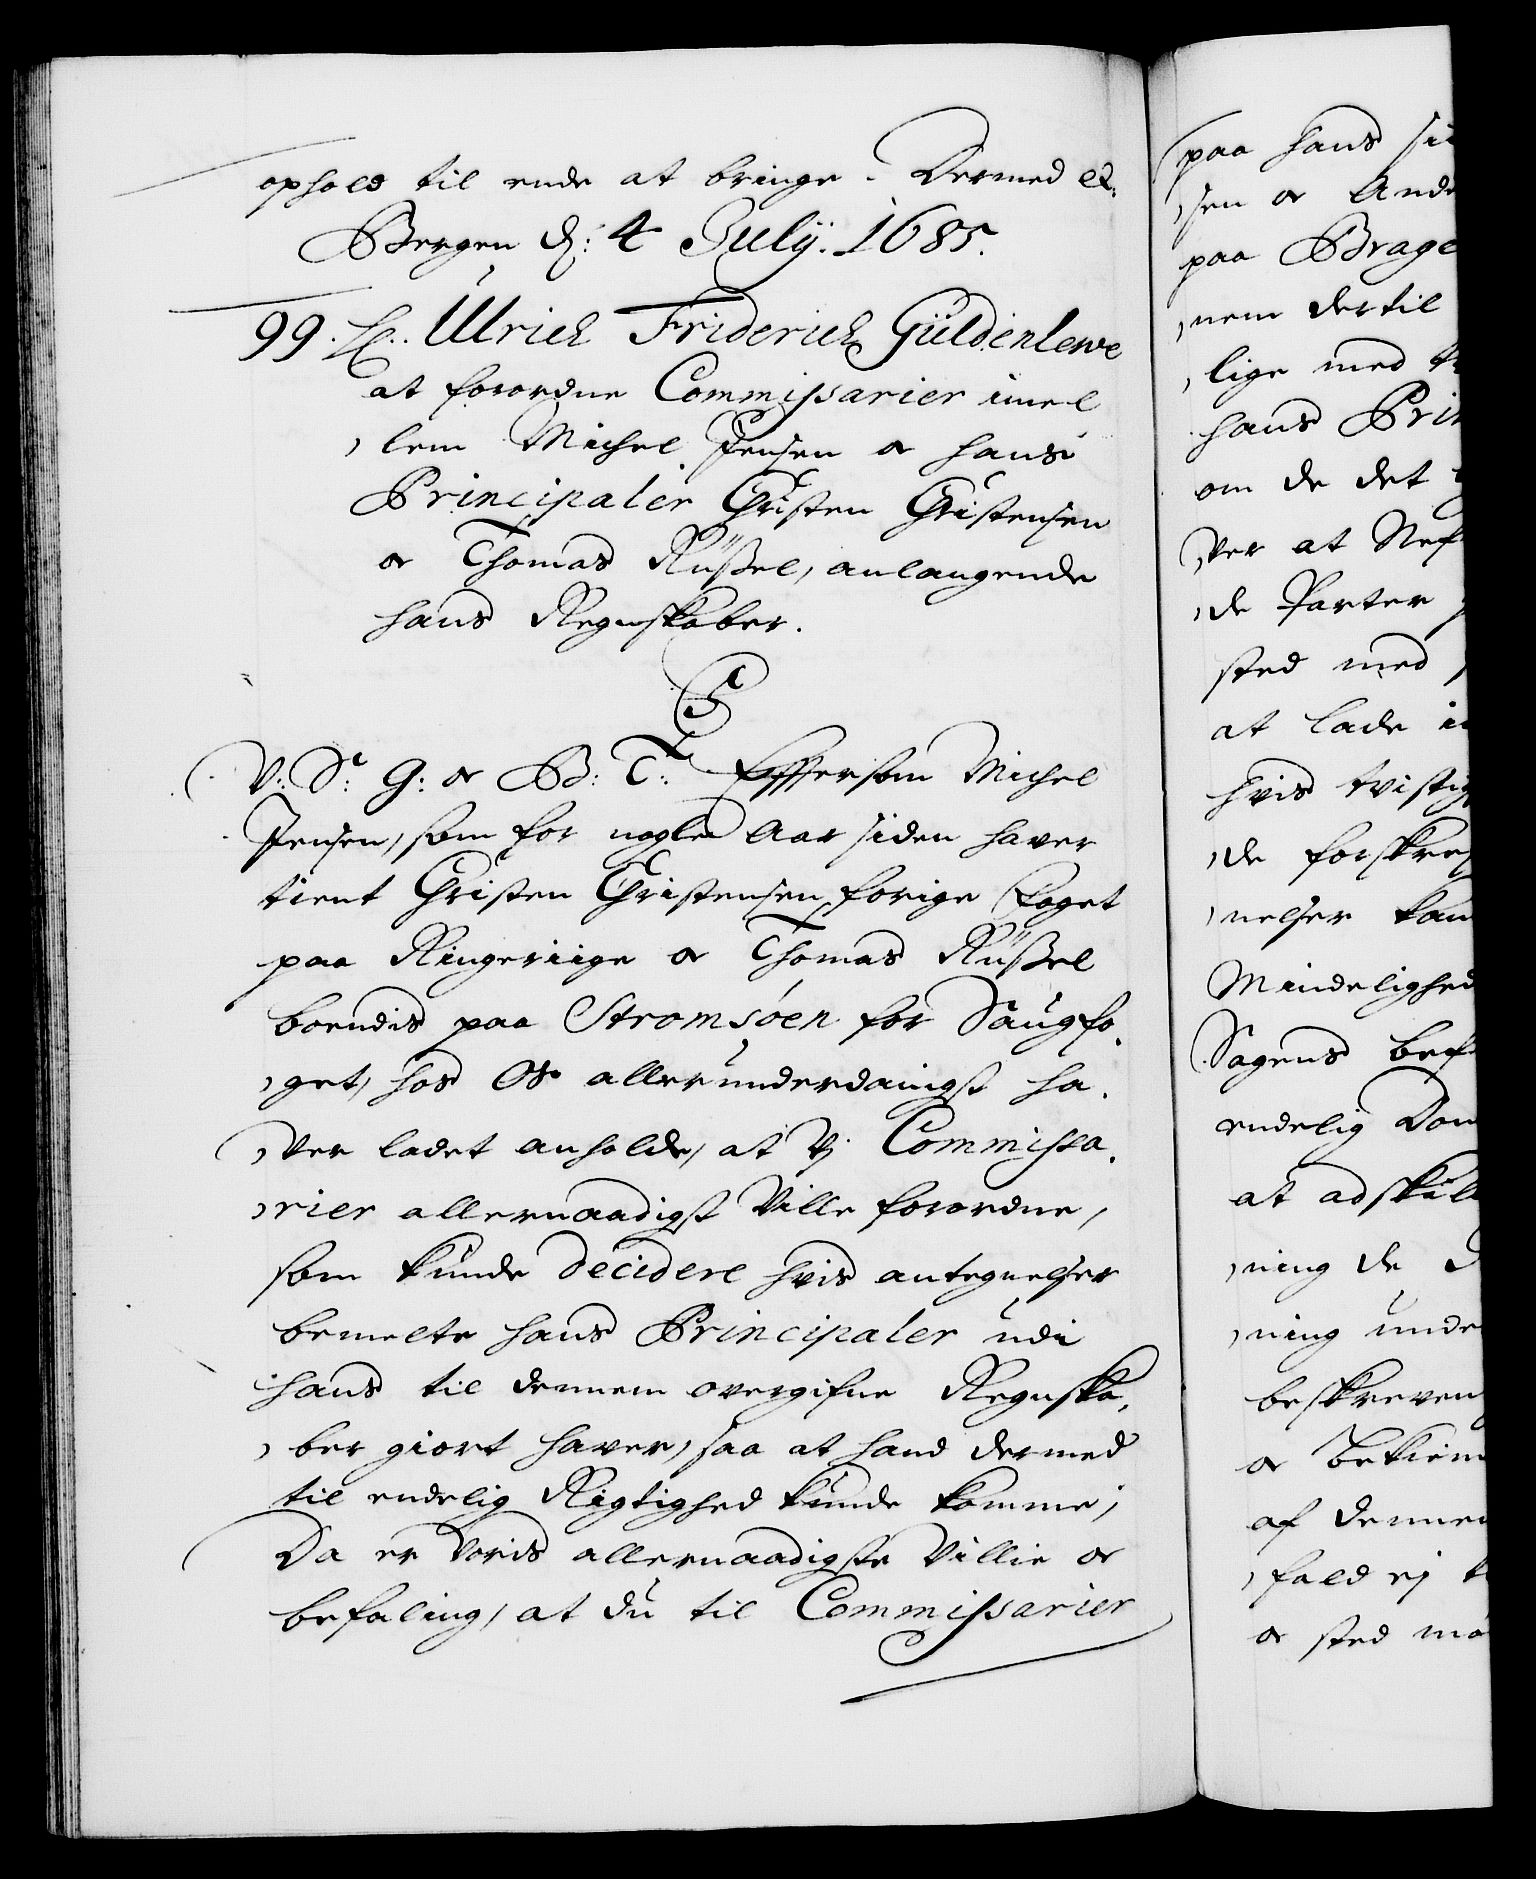 ophold til ende at bringe. Dermed etc:
Bergen d: 4 Julij. 1685.
99. Ulrich Friderich Güldenlewe
at forordne Commissarier imel
lem Michel Jensen oc hans
Principaler Christen Christensen
oc Thomas Rüssel, anlangende
hans Regnskaber.
C5
V: S: G: oc B: T: Eftersom Michel
Jensen, som for nogle Aar siden haver
tient Christen Christensen forige Foget
paa Ringeriige oc Thomas Rüssel
boendis paa Stromsøen for Saugfo,
get, hos Os allerunderdanigst ha,
ver ladet anholde, at Vj Commissa,
rier allernaadigst Ville forordne,
som kunde decidere hvis antegnelser
bemelte hans Principaler udi
hans til dennem overgifne Regnska,
ber giort haver, saa at hand dermed
til endelig Rigtighed kunde komme;
Da er Voris allernaadigste Villie oc
befaling, at du til Commissarier
paa hans
sen oc Ande
paa Brage
nem dertil
lige med
hans Prin
om de det
ver at
de Parter
sted med
at lade
hvis tvistig
de forskref
nelser kan
Mindelighed
Sagens bef
endelig Dom
at adskill
ning de
ning unde
beskreven
oc bekiem
af dennem
fald ej
oc sted